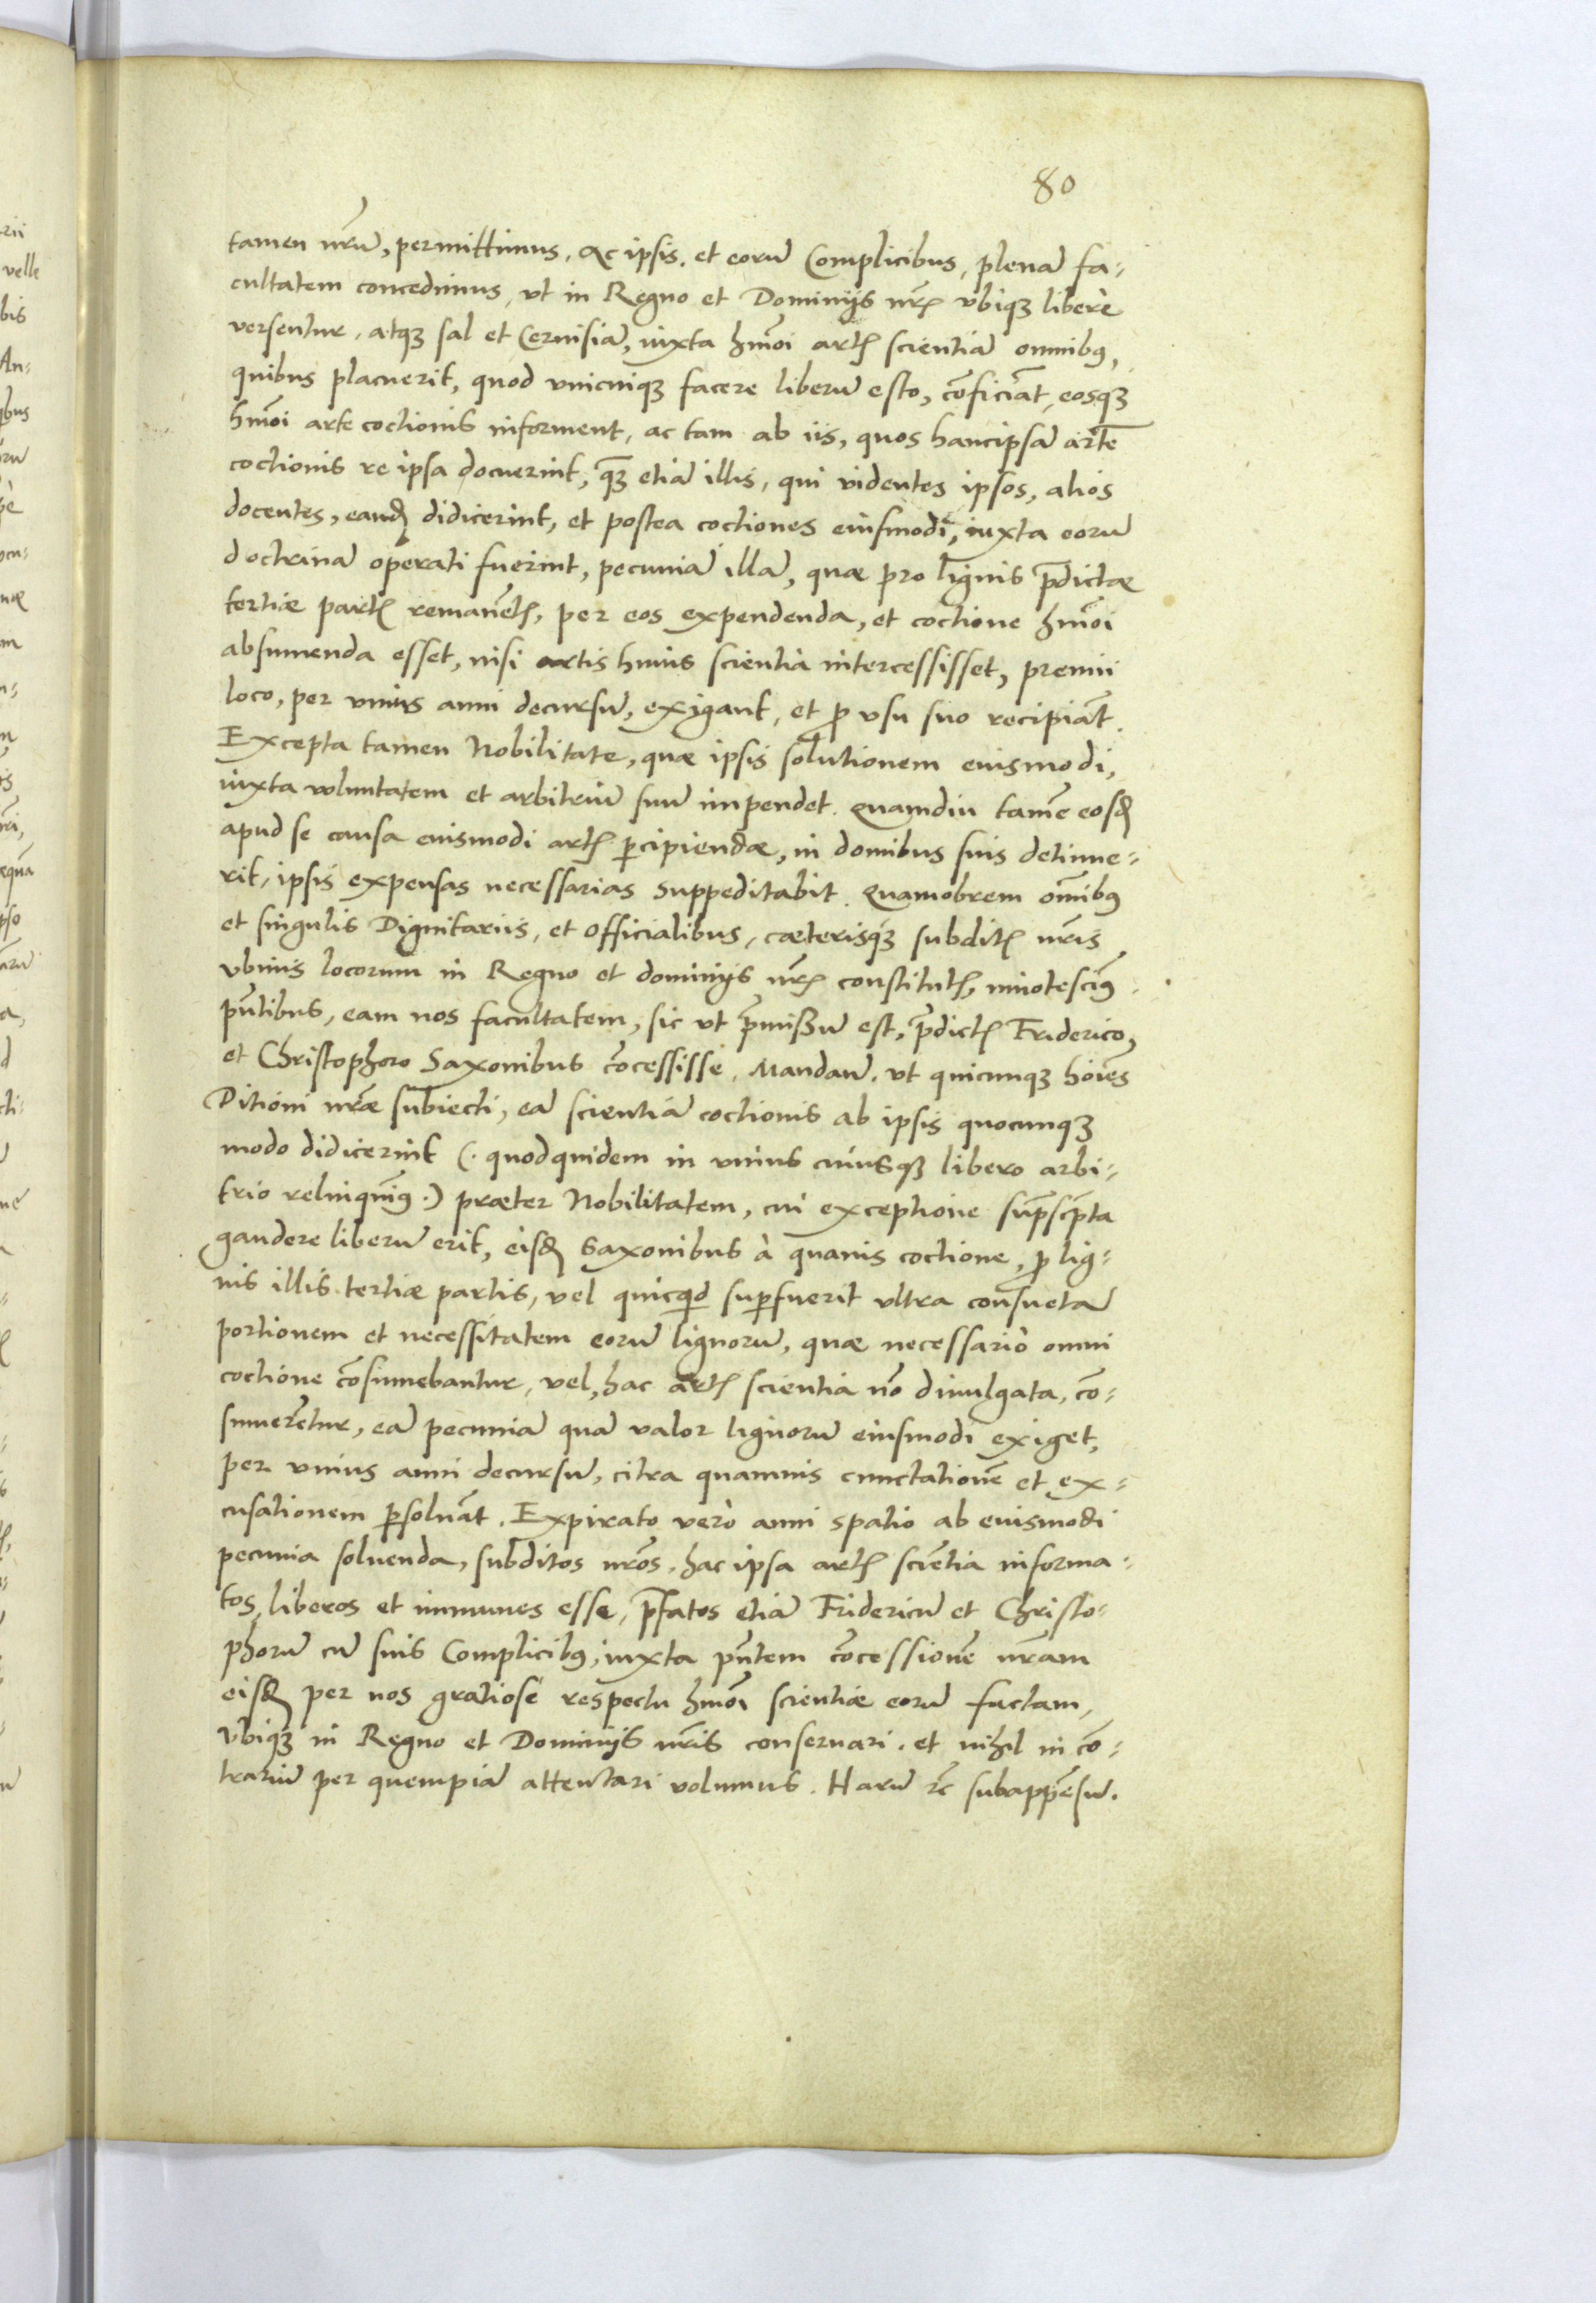 80
tamen nr̄ū, permittimus, Ac ipsis, et eorū Complicibus, plenā fa-
cultatem concedimus, vt in Regno et Dominijs nr̄is vbiqʒ libere
versentur, atqʒ sal et Ceruisiā, iuxta hmōi artis scientiā omnibꝰ,
quibus placuerit, quod vnicuiqʒ facere liberū esto, cōficiāt, eosqʒ
hmōi arte coctionis informent, ac tam ab iis, quos hancipsā artē
coctionis re ipsa docuerint, qʒ etiā illis, qui videntes ipsos, alios
docentes, eandē didicerint, et postea coctiones eiusmodi, iuxta eorū
doctrinā operati fuerint, pecuniā illā, quæ pro lignis p̄dictæ
tertiæ partis remanētis, per eos expendenda, et coctione hmōi
absumenda esset, nisi artis huius scientia intercessisset, premii
loco, per vnius anni decursū, exigant, et ꝓ vsu suo recipiāt.
Excepta tamen Nobilitate, quæ ipsis solutionem euismodi,
iuxta voluntatem et arbitriū suū impendet. Quamdiu tamē eosdē
apud se causa euismodi artis ꝑcipiendæ, in domibus suis detinue-
rit, ipsis expensas necessarias suppeditabit. Quamobrem om̄ibꝰ
et singulis Dignitariis, et Officialibus, cæterisqʒ subditis nr̄is
vbiuis locorum in Regno et dominijs nr̄is constitutis, innotescimꝰ
pn̄tibus, eam nos facultatem, sic vt p̄missū est, p̄dictis Friderico,
et Christophoro Saxonibus cōcessisse, Mandam̄, vt quicunqʒ hoīes
Ditioni nr̄æ subiecti, eā scientiā coctionis ab ipsis quocunqʒ
modo didicerint (. quodquidem in vnius cuiusqʒ libero arbi-
trio relinquimꝰ .) præter Nobilitatem, cui exceptione sup̄scp̄ta
gaudere liberū erit, eisdē Saxonibus à quauis coctione, ꝓ lig-
nis illis tertiæ partis, vel quicqd suꝑfuerit vltra consuetā
portionem et necessitatem eorū lignorū, quæ necessario omni
coctione cōsumebantur, vel, hac artis scientia nō diuulgata, cō-
sumerētur, eā pecuniā quā valor lignorū eiusmodi exiget,
per vnius anni decursū, citra quamuis cunctationē et ex-
cusationem ꝑsoluāt. Expirato verò anni spatio ab euismodi
pecunia soluenda, subditos nr̄os, hac ipsa artis sciētia informa-
tos, liberos et immunes esse, p̄fatos etiā Fridericū et Christo-
phorū cū suis Complicibꝰ, iuxta pn̄tem cōcessionē nr̄am
eisdē per nos gratiosè respectu hmōi scientiæ eorū factam,
Vbiqʒ in Regno et Dominijs nr̄is conseruari, et nihil in cō-
trariū per quempiā attentari volumus. Harū &c subappēsū.